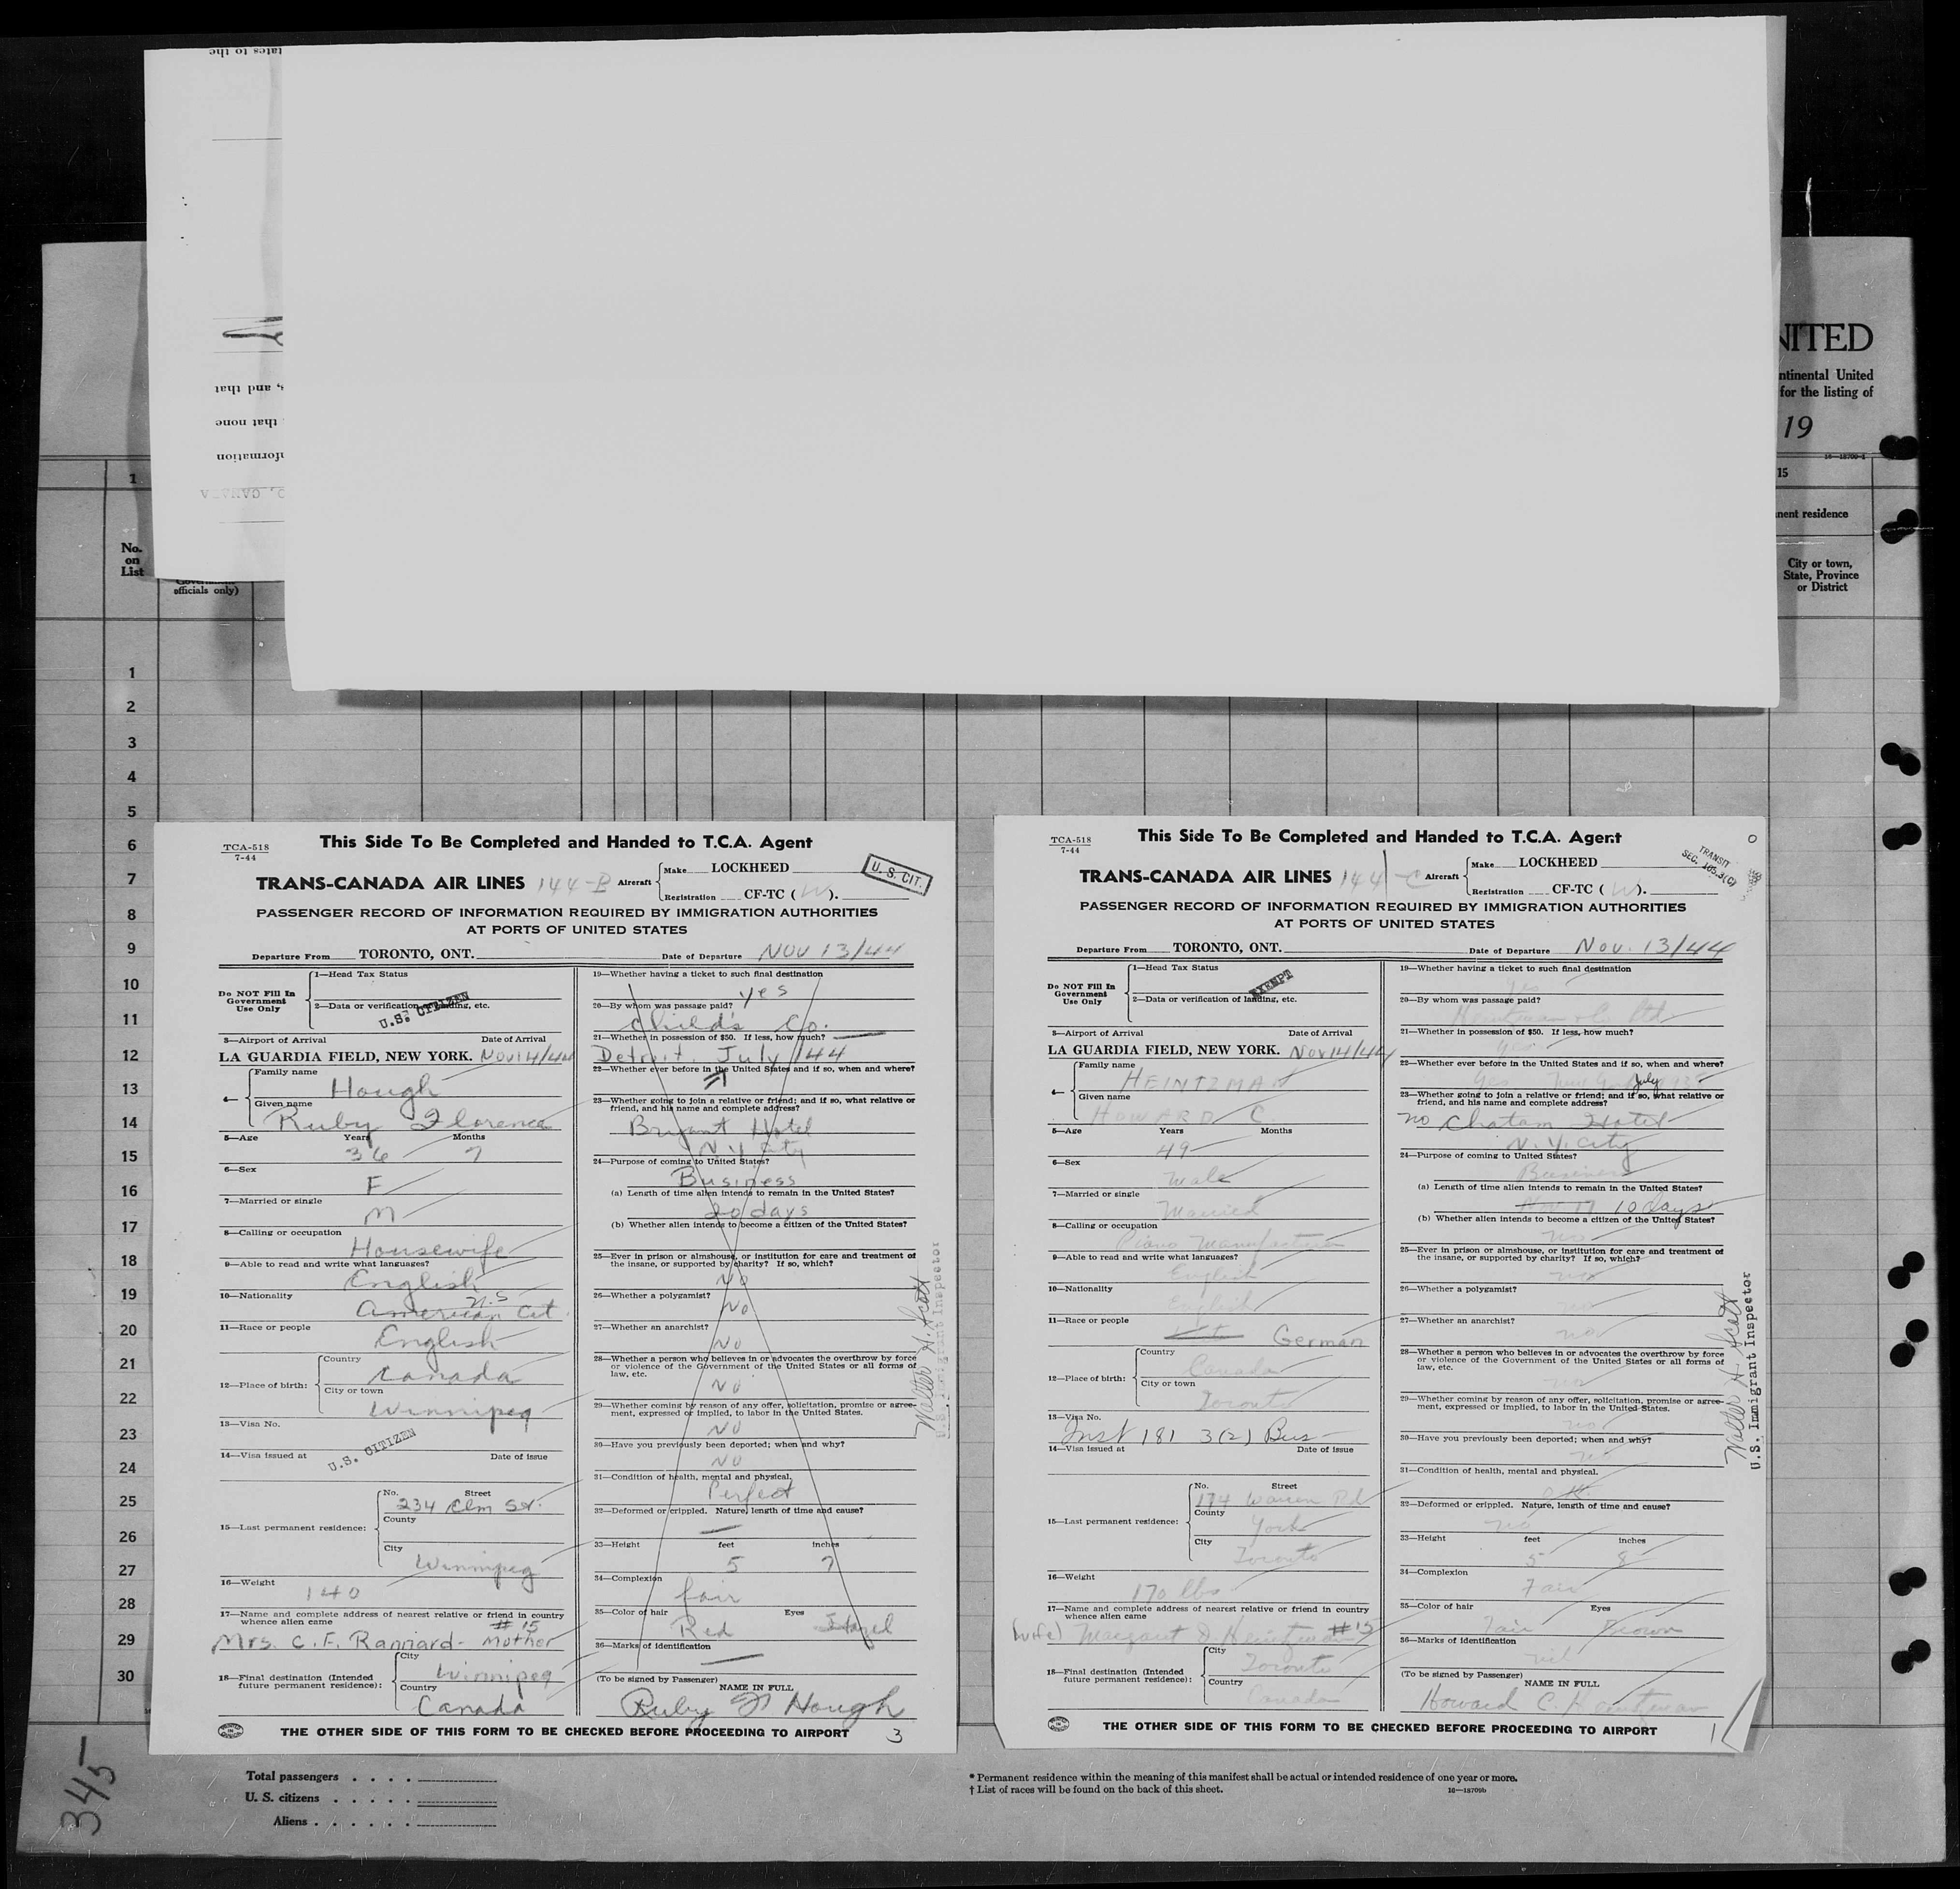 NITED
ntinental United
for the listing of
19
16—18709-1
1
15
nent residence
No.
on
List
officials only)
City or town,
State, Province
or District
1
2
3
4
5
6
7
8
9
10
11
12
13
14
15
16
17
18
19
20
21
22
23
24
25
26
27
28
29
30
tates to the
, and that
that none
nformation
CANADA
TCA-518
7-44
This Side To Be Completed and Handed to T.C.A. Agent
U. S. CIT.
TRANS-CANADA AIR LINES 144-B Aircraft
Make LOCKHEED
Registration CF-TC ( W ).
PASSENGER RECORD OF INFORMATION REQUIRED BY IMMIGRATION AUTHORITIES
AT PORTS OF UNITED STATES
Departure From TORONTO, ONT. Date of Departure NOV 13/44
Do NOT Fill In
Government
Use Only
1—Head Tax Status
2—Data or verification of landing, etc.
U.S. CITIZEN
3—Airport of Arrival Date of Arrival
LA GUARDIA FIELD, NEW YORK. Nov 14/44
4—
Family name
Hough
Given name
Ruby Florence
5—Age Years Months
36 7
6—Sex
F
7—Married or single
M
8—Calling or occupation
Housewife
9—Able to read and write what languages?
English
10—Nationality
American Cit
11—Race or people
English
12—Place of birth:
Country
Canada
City or town
Winnipeg
13—Visa No.
U.S. CITIZEN
14—Visa issued at Date of issue
15—Last permanent residence:
No. Street
234 Elm St.
County
City
Winnipeg
16—Weight
140
17—Name and complete address of nearest relative or friend in country
whence alien came
# 15
Mrs. C. F. Rannard - Mother
18—Final destination (Intended
future permanent residence):
City
Winnipeg
Country
Canada
19—Whether having a ticket to such final destination
Yes
20—By whom was passage paid?
Child's Co.
21—Whether in possession of $50. If less, how much?
Detroit. July /44
22—Whether ever before in the United States and if so, when and where?
23—Whether going to join a relative or friend; and if so, what relative or
friend, and his name and complete address?
Bryant Hotel
N Y City
24—Purpose of coming to United States?
Business
(a) Length of time alien intends to remain in the United States?
20 days
(b) Whether alien intends to become a citizen of the United States?
25—Ever in prison or almshouse, or institution for care and treatment of
the insane, or supported by charity? If so, which?
NO
26—Whether a polygamist?
No
27—Whether an anarchist?
NO
28—Whether a person who believes in or advocates the overthrow by force
or violence of the Government of the United States or all forms of
law, etc.
NO
29—Whether coming by reason of any offer, solicitation, promise or agree-
ment, expressed or implied, to labor in the United States.
NO
30—Have you previously been deported; when and why?
NO
31—Condition of health, mental and physical.
Perfect
32—Deformed or crippled. Nature, length of time and cause?
33—Height feet inches
5 7
34—Complexion
fair
35—Color of hair Eyes
Red Hazel
36—Marks of identification
(To be signed by Passenger)
NAME IN FULL
Ruby F Hough
Walter H. Scott
U.S. Immigrant Inspector
THE OTHER SIDE OF THIS FORM TO BE CHECKED BEFORE PROCEEDING TO AIRPORT
3
TCA-518
7-44
This Side To Be Completed and Handed to T.C.A. Agent
O
TRANSIT
SEC. 105.3(C)
TRANS-CANADA AIR LINES 144-C Aircraft
Make LOCKHEED
Registration CF-TC ( W ).
PASSENGER RECORD OF INFORMATION REQUIRED BY IMMIGRATION AUTHORITIES
AT PORTS OF UNITED STATES
Departure From TORONTO, ONT. Date of Departure Nov. 13/44
Do NOT Fill In
Government
Use Only
1—Head Tax Status
EXEMPT
2—Data or verification of landing, etc.
3—Airport of Arrival Date of Arrival
LA GUARDIA FIELD, NEW YORK. Nov 14/44
4—
Family name
HEINTZMAN
Given name
HOWARD C.
5—Age Years Months
49
6—Sex
Male
7—Married or single
Married
8—Calling or occupation
Piano Manufacturer
9—Able to read and write what languages?
English
10—Nationality
English
11—Race or people
German
12—Place of birth:
Country
Canada
City or town
Toronto
13—Visa No.
Inst 181 3(2) Bus
14—Visa issued at Date of issue
15—Last permanent residence:
No. Street
174 Warren Rd
County
York
City
Toronto
16—Weight
170 lbs
17—Name and complete address of nearest relative or friend in country
whence alien came
(wife) Margaret D. Heintzman #15
18—Final destination (Intended
future permanent residence):
City
Toronto
Country
Canada
19—Whether having a ticket to such final destination
Yes
20—By whom was passage paid?
Heintzman & Co Ltd
21—Whether in possession of $50. If less, how much?
Yes
22—Whether ever before in the United States and if so, when and where?
Yes New York July
23—Whether going to join a relative or friend; and if so, what relative or
friend, and his name and complete address?
no Chatam Hotel
N. Y. City
24—Purpose of coming to United States?
Business
(a) Length of time alien intends to remain in the United States?
Nov 17 10 days
(b) Whether alien intends to become a citizen of the United States?
no
25—Ever in prison or almshouse, or institution for care and treatment of
the insane, or supported by charity? If so, which?
no
26—Whether a polygamist?
no
27—Whether an anarchist?
no
28—Whether a person who believes in or advocates the overthrow by force
or violence of the Government of the United States or all forms of
law, etc.
no
29—Whether coming by reason of any offer, solicitation, promise or agree-
ment, expressed or implied, to labor in the United States.
no
30—Have you previously been deported; when and why?
no
31—Condition of health, mental and physical.
32—Deformed or crippled. Nature, length of time and cause?
no
33—Height feet inches
5 8
34—Complexion
Fair
35—Color of hair Eyes
Fair Brown
36—Marks of identification
nil
(To be signed by Passenger)
NAME IN FULL
Howard C. Heintzman
Walter H. Scott
U.S. Immigrant Inspector
THE OTHER SIDE OF THIS FORM TO BE CHECKED BEFORE PROCEEDING TO AIRPORT
1
345
Total passengers . . . .
U. S. citizens . . . . .
Aliens . . . . . .
* Permanent residence within the meaning of this manifest shall be actual or intended residence of one year or more.
† List of races will be found on the back of this sheet.
16—18709b